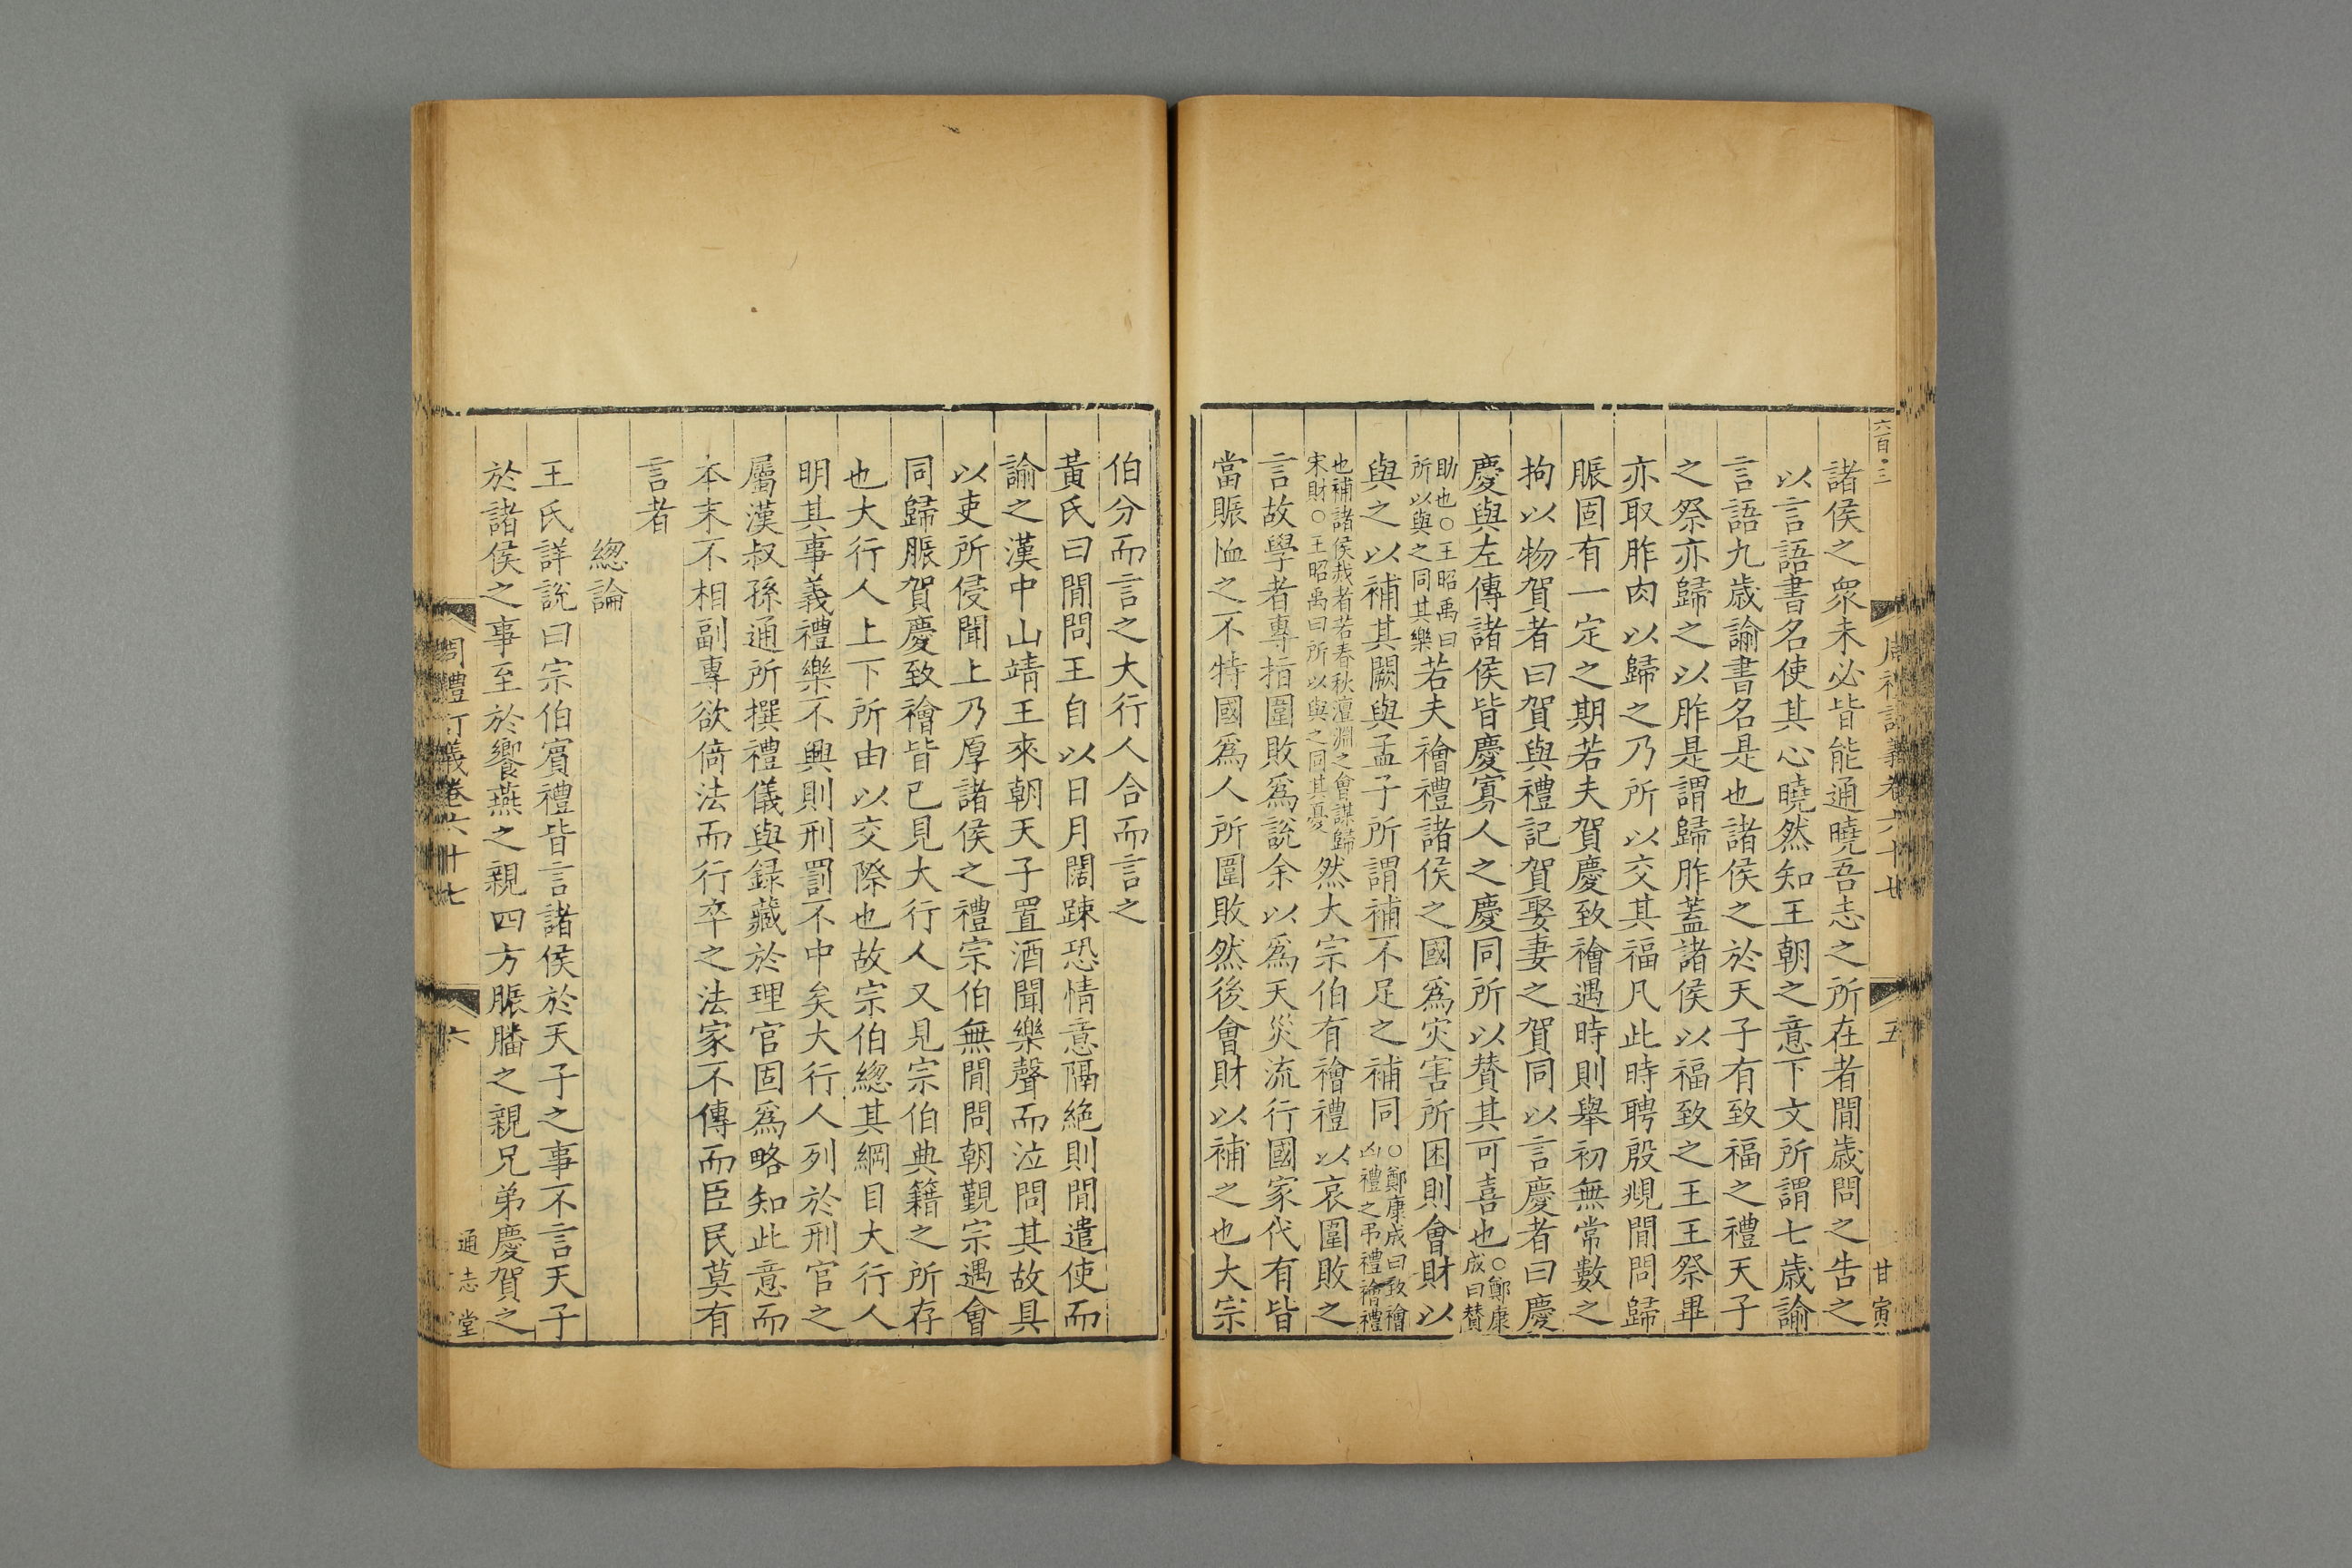 六百〇三
周禮訂義卷六十七
五
甘寅
諸侯之衆未必皆能通曉吾志之所在者閒歲問之告之
以言語書名使其心曉然知王朝之意下文所謂七歲諭
言語九歲諭書名是也諸侯之於天子有致福之禮天子
之祭亦歸之以胙是謂歸胙蓋諸侯以福致之王王祭畢
亦取胙肉以歸之乃所以交其福凡此時聘殷覜閒問歸
脤固有一定之期若夫賀慶致禬遇時則舉初無常數之
拘以物賀者曰賀與禮記賀娶妻之賀同以言慶者曰慶
慶與左傳諸侯皆慶寡人之慶同所以賛其可喜也○鄭康成曰賛
助也○王昭禹曰所以與之同其樂若夫禬禮諸侯之國爲灾害所困則會財以
與之以補其闕與孟子所謂補不足之補同○鄭康成曰致禬凶禮之弔禮禬禮
也補諸侯烖者若春秋澶淵之會謀歸宋財○王昭禹曰所以與之同其憂然大宗伯有禬禮以哀圍敗之
言故學者專指圍敗爲說余以爲天災流行國家代有皆
當賑恤之不特國爲人所圍敗然後會財以補之也大宗
伯分而言之大行人合而言之
黃氏曰閒問王自以日月闊踈恐情意隔絶則閒遣使而
諭之漢中山靖王來朝天子置酒聞樂聲而泣問其故具
以吏所侵聞上乃厚諸侯之禮宗伯無閒問朝覲宗遇會
同歸脤賀慶致禬皆已見大行人又見宗伯典籍之所存
也大行人上下所由以交際也故宗伯緫其綱目大行人
明其事義禮樂不興則刑罰不中矣大行人列於刑官之
屬漢叔孫通所撰禮儀與録藏於理官固爲略知此意而
本末不相副專欲倚法而行卒之法家不傳而臣民莫有
言者
緫論
王氏詳說曰宗伯賓禮皆言諸侯於天子之事不言天子
於諸侯之事至於饗燕之親四方脤膰之親兄弟慶賀之
周禮訂義卷六十七
六
通志堂